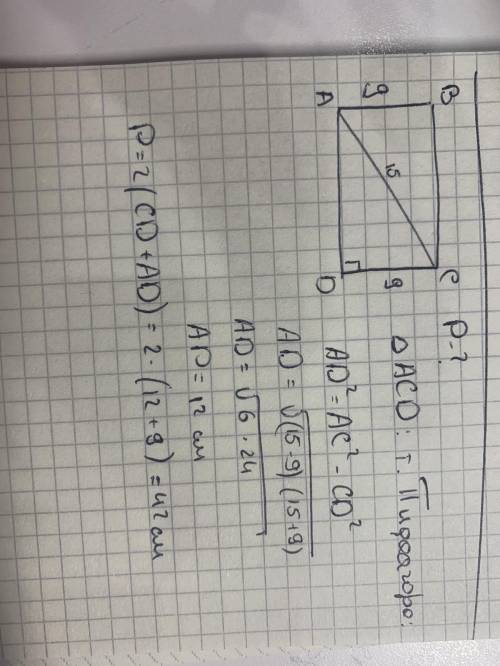 B C
9 15 9
A D
P-?
△ACD: т. Пифагора:
AD² = AC² - CD²
AD = √(15-9)(15+9)
AD = √6 · 24
AD = 12 см
P = 2(CD + AD) = 2 · (12 + 9) = 42 см